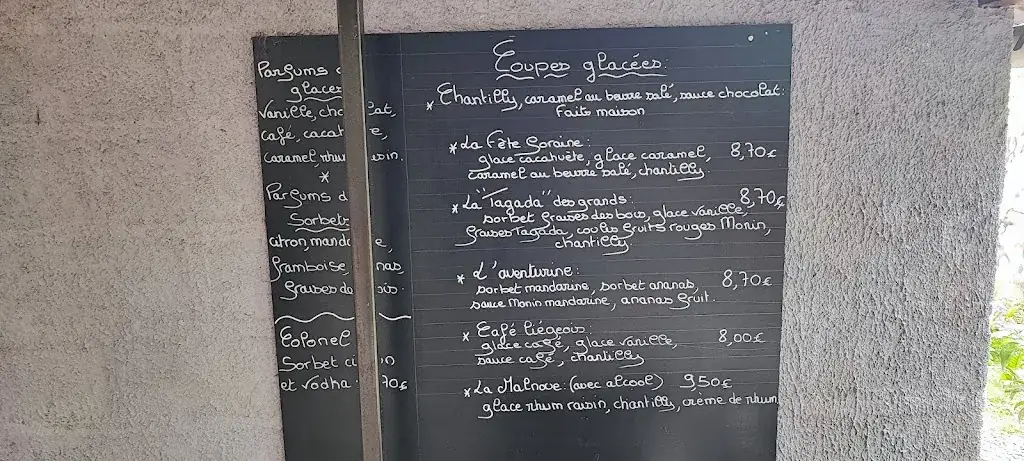 Parfums
glaces
Vanille, cho lat,
café, cacah e,
caramel, rhu isin.
*
Parfums d
Sorbets
citron, manda e,
framboise, nas,
fraises de ois.
Colonel
Sorbet ci n
et vodka 70€
Coupes glacées:
* Chantilly, caramel au beurre salé, sauce chocolat:
Faits maison
* La Fête Foraine: 8,70€
glace cacahuète, glace caramel,
caramel au beurre salé, chantilly.
* La "Tagada" des grands: 8,70€
sorbet fraises des bois, glace vanille,
fraises Tagada, coulis fruits rouges Monin,
chantilly.
* L'aventurine: 8,70€
sorbet mandarine, sorbet ananas,
sauce Monin mandarine, ananas fruit.
* Café liégeois: 8,00€
glace café, glace vanille,
sauce café, chantilly
* La Malnoue: (avec alcool) 9,50€
glace rhum raisin, chantilly, crème de rhum